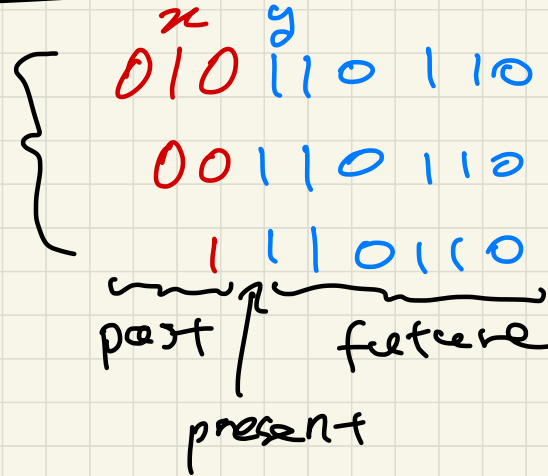 x y
010 110 110
00 110 110
1 110110
past future
present